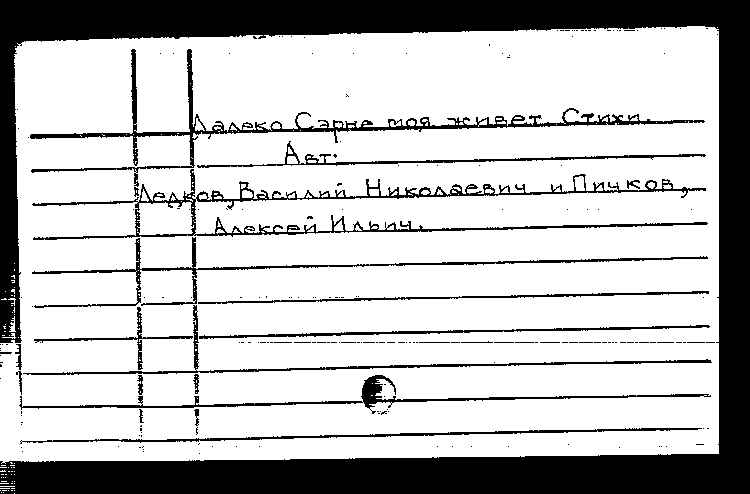 Далеко Сэрне моя живет. Стихи.
Авт:
Ледков, Василий Николаевич и Пичков,
Алексей Ильич.